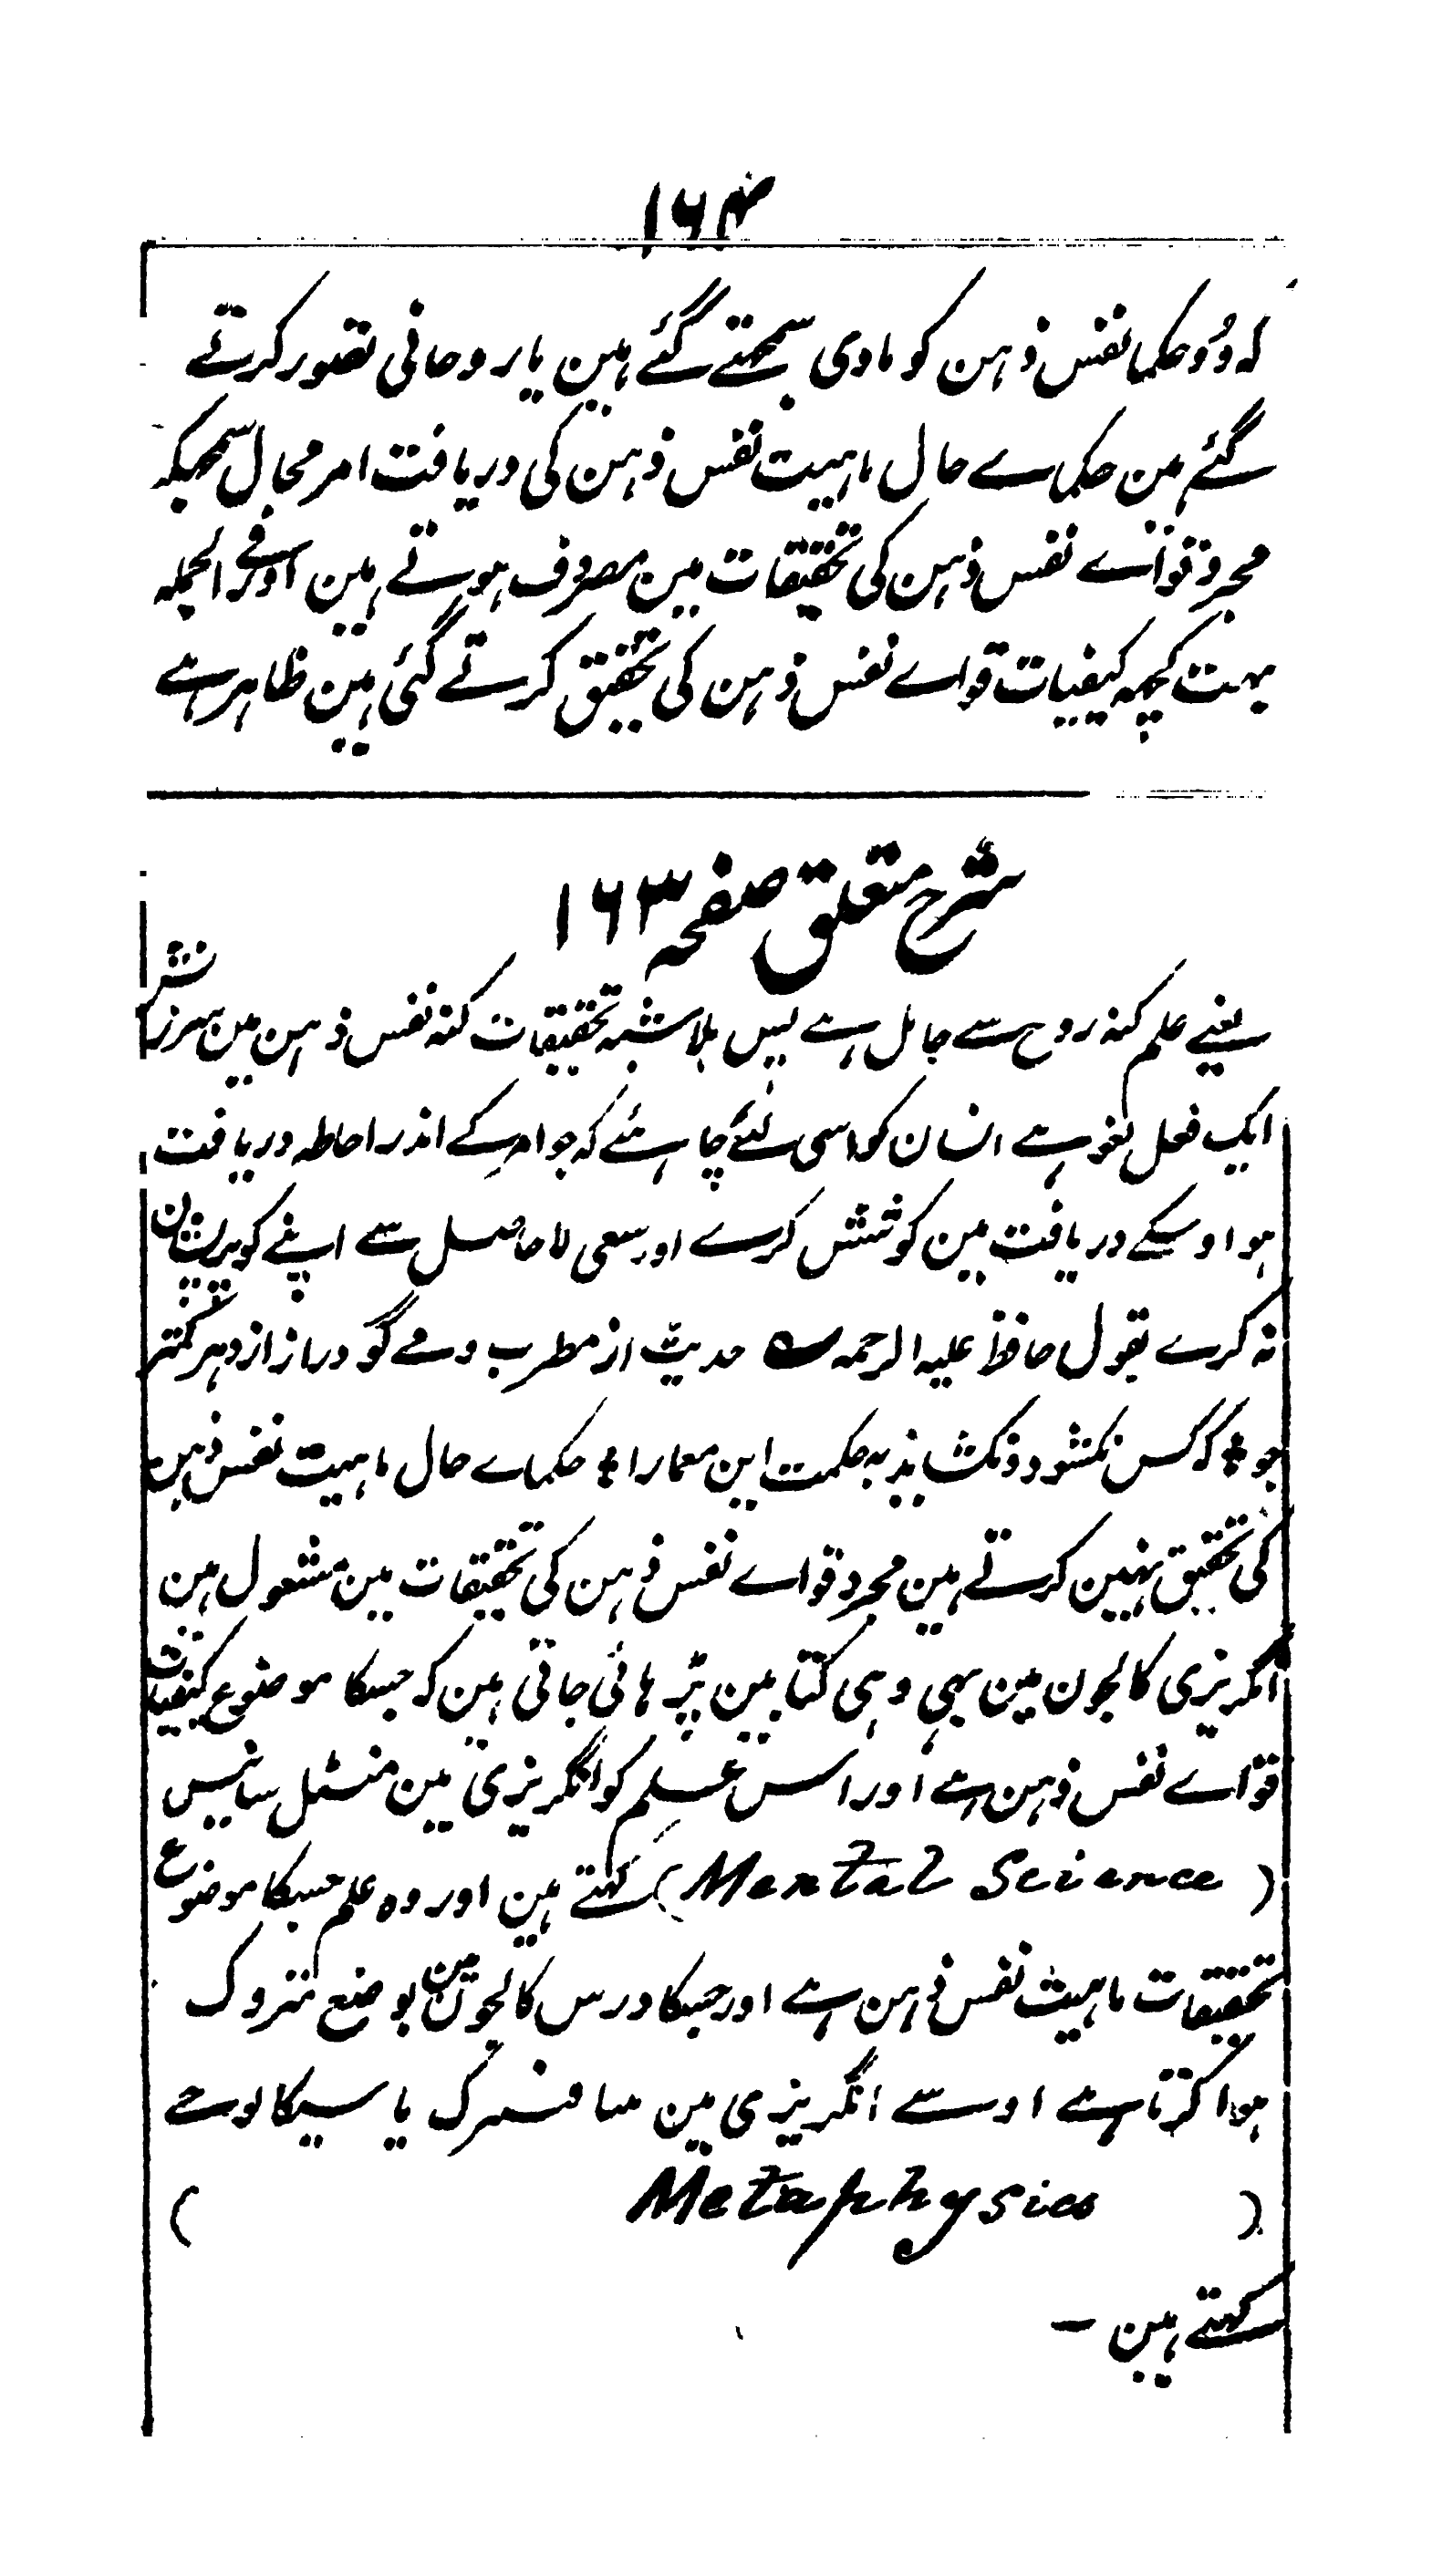 ۱۶۴
کہ دو حکما نفس ذہن کو مادی سمجھتے گئے ہین یا روحانی تصور کرتے
گئے ہین حکماے حال ماہیت نفس ذہن کی دریافت امر محال سمجھکہ
مجرد قواے نفس ذہن کی تحقیقات مین مصروف ہوتے ہین اور فی الجملہ
بہت کچھہ کیفیات قواے نفس ذہن کی تحقیق کرتے گئی ہین ظاہر ہے
شرح متعلق صفحہ ۱۶۳
یعنے علم کنہ روح سے جاہل ہے پس بلا شبہ تحقیقات کنہ نفس ذہن مین سرزنش
ایک فعل لغو ہے انسان کو اسی لئے چاہئے کہ جو امر کے اندر احاطہ دریافت
ہو اوسکے دریافت مین کوشش کرے اور سعی لا حاصل سے اپنے کو پریشان
نہ کرے بقول حافظ علیہ الرحمہ ؎ حدیث از مطرب و مے گو و راز از دہر کمتر
جو * کہ کس نکشود و نکشاید بہ حکمت این معمارا * حکماے حال ماہیت نفس ذہن
کی تحقیق نہین کرتے ہین مجرد قواے نفس ذہن کی تحقیقات مین مشغول ہین
انگریزی کالجون مین بہی وہی کتابین پڑہائی جاتی ہین کہ جسکا موضوع کیفیات
قواے نفس ذہن ہے اور اس علم کو انگریزی مین منٹل سائنیس
( Mental Science ) کہتے ہین اور وہ علم جسکا موضوع
تحقیقات ماہیت نفس ذہن ہے اور جسکا درس کالجون مین بوضع متروک
ہوا کرتا ہے اوسے انگریزی مین مٹافسرک یا سیکالوجے
( Metaphysics )
کہتے ہین ـ